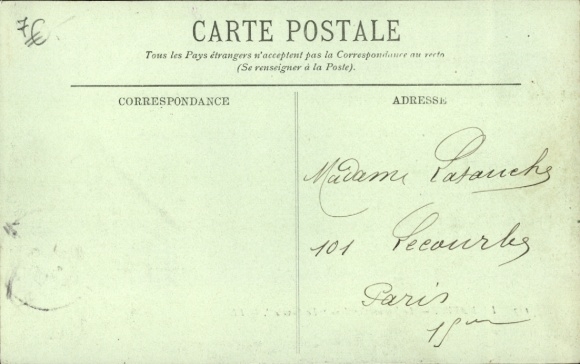 7€
CARTE POSTALE
Tous les Pays étrangers n'acceptent pas la Correspondance au recto
(Se renseigner à la Poste).
CORRESPONDANCE
ADRESSE
Madame Lasauche
101 Lecourbe
Paris
15em